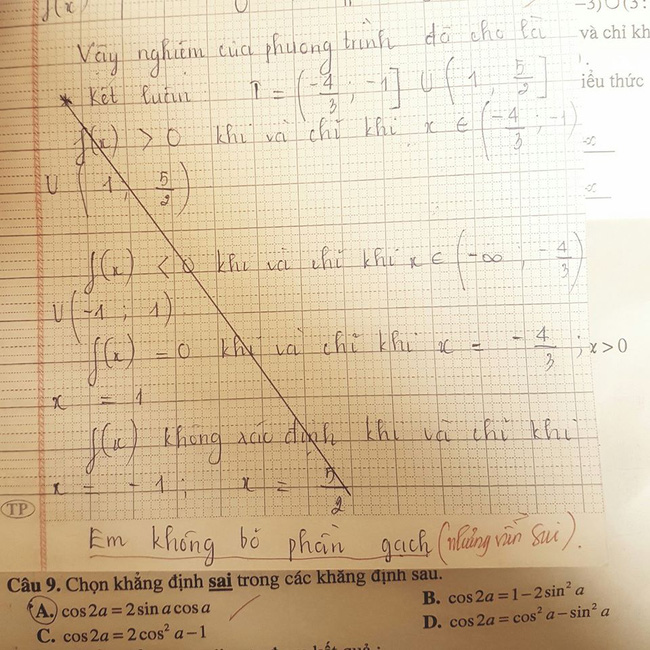 f(x) 0
-3)∪(3;
Vậy nghiệm của phương trình đã cho là
và chỉ kh
Kết luận: T = (-4/3 ; -1] ∪ (1 ; 5/2]
iểu thức
f(x) > 0 khi và chỉ khi x ∈ (-4/3 ; -1)
-x
∪ (1 ; 5/2)
f(x) < 0 khi và chỉ khi x ∈ (-∞ ; -4/3)
∪ (-1 ; 1)
f(x) = 0 khi và chỉ khi x = -4/3 ; x>0
x = 1
f(x) không xác định khi và chỉ khi
x = -1 ; x = 5/2
TP
Em không bỏ phần gạch (nhưng vẫn sai).
Câu 9. Chọn khẳng định sai trong các khẳng định sau.
A. cos2a = 2 sin a cos a
B. cos 2a = 1 – 2 sin² a
C. cos 2a = 2 cos² a – 1
D. cos 2a = cos² a – sin² a